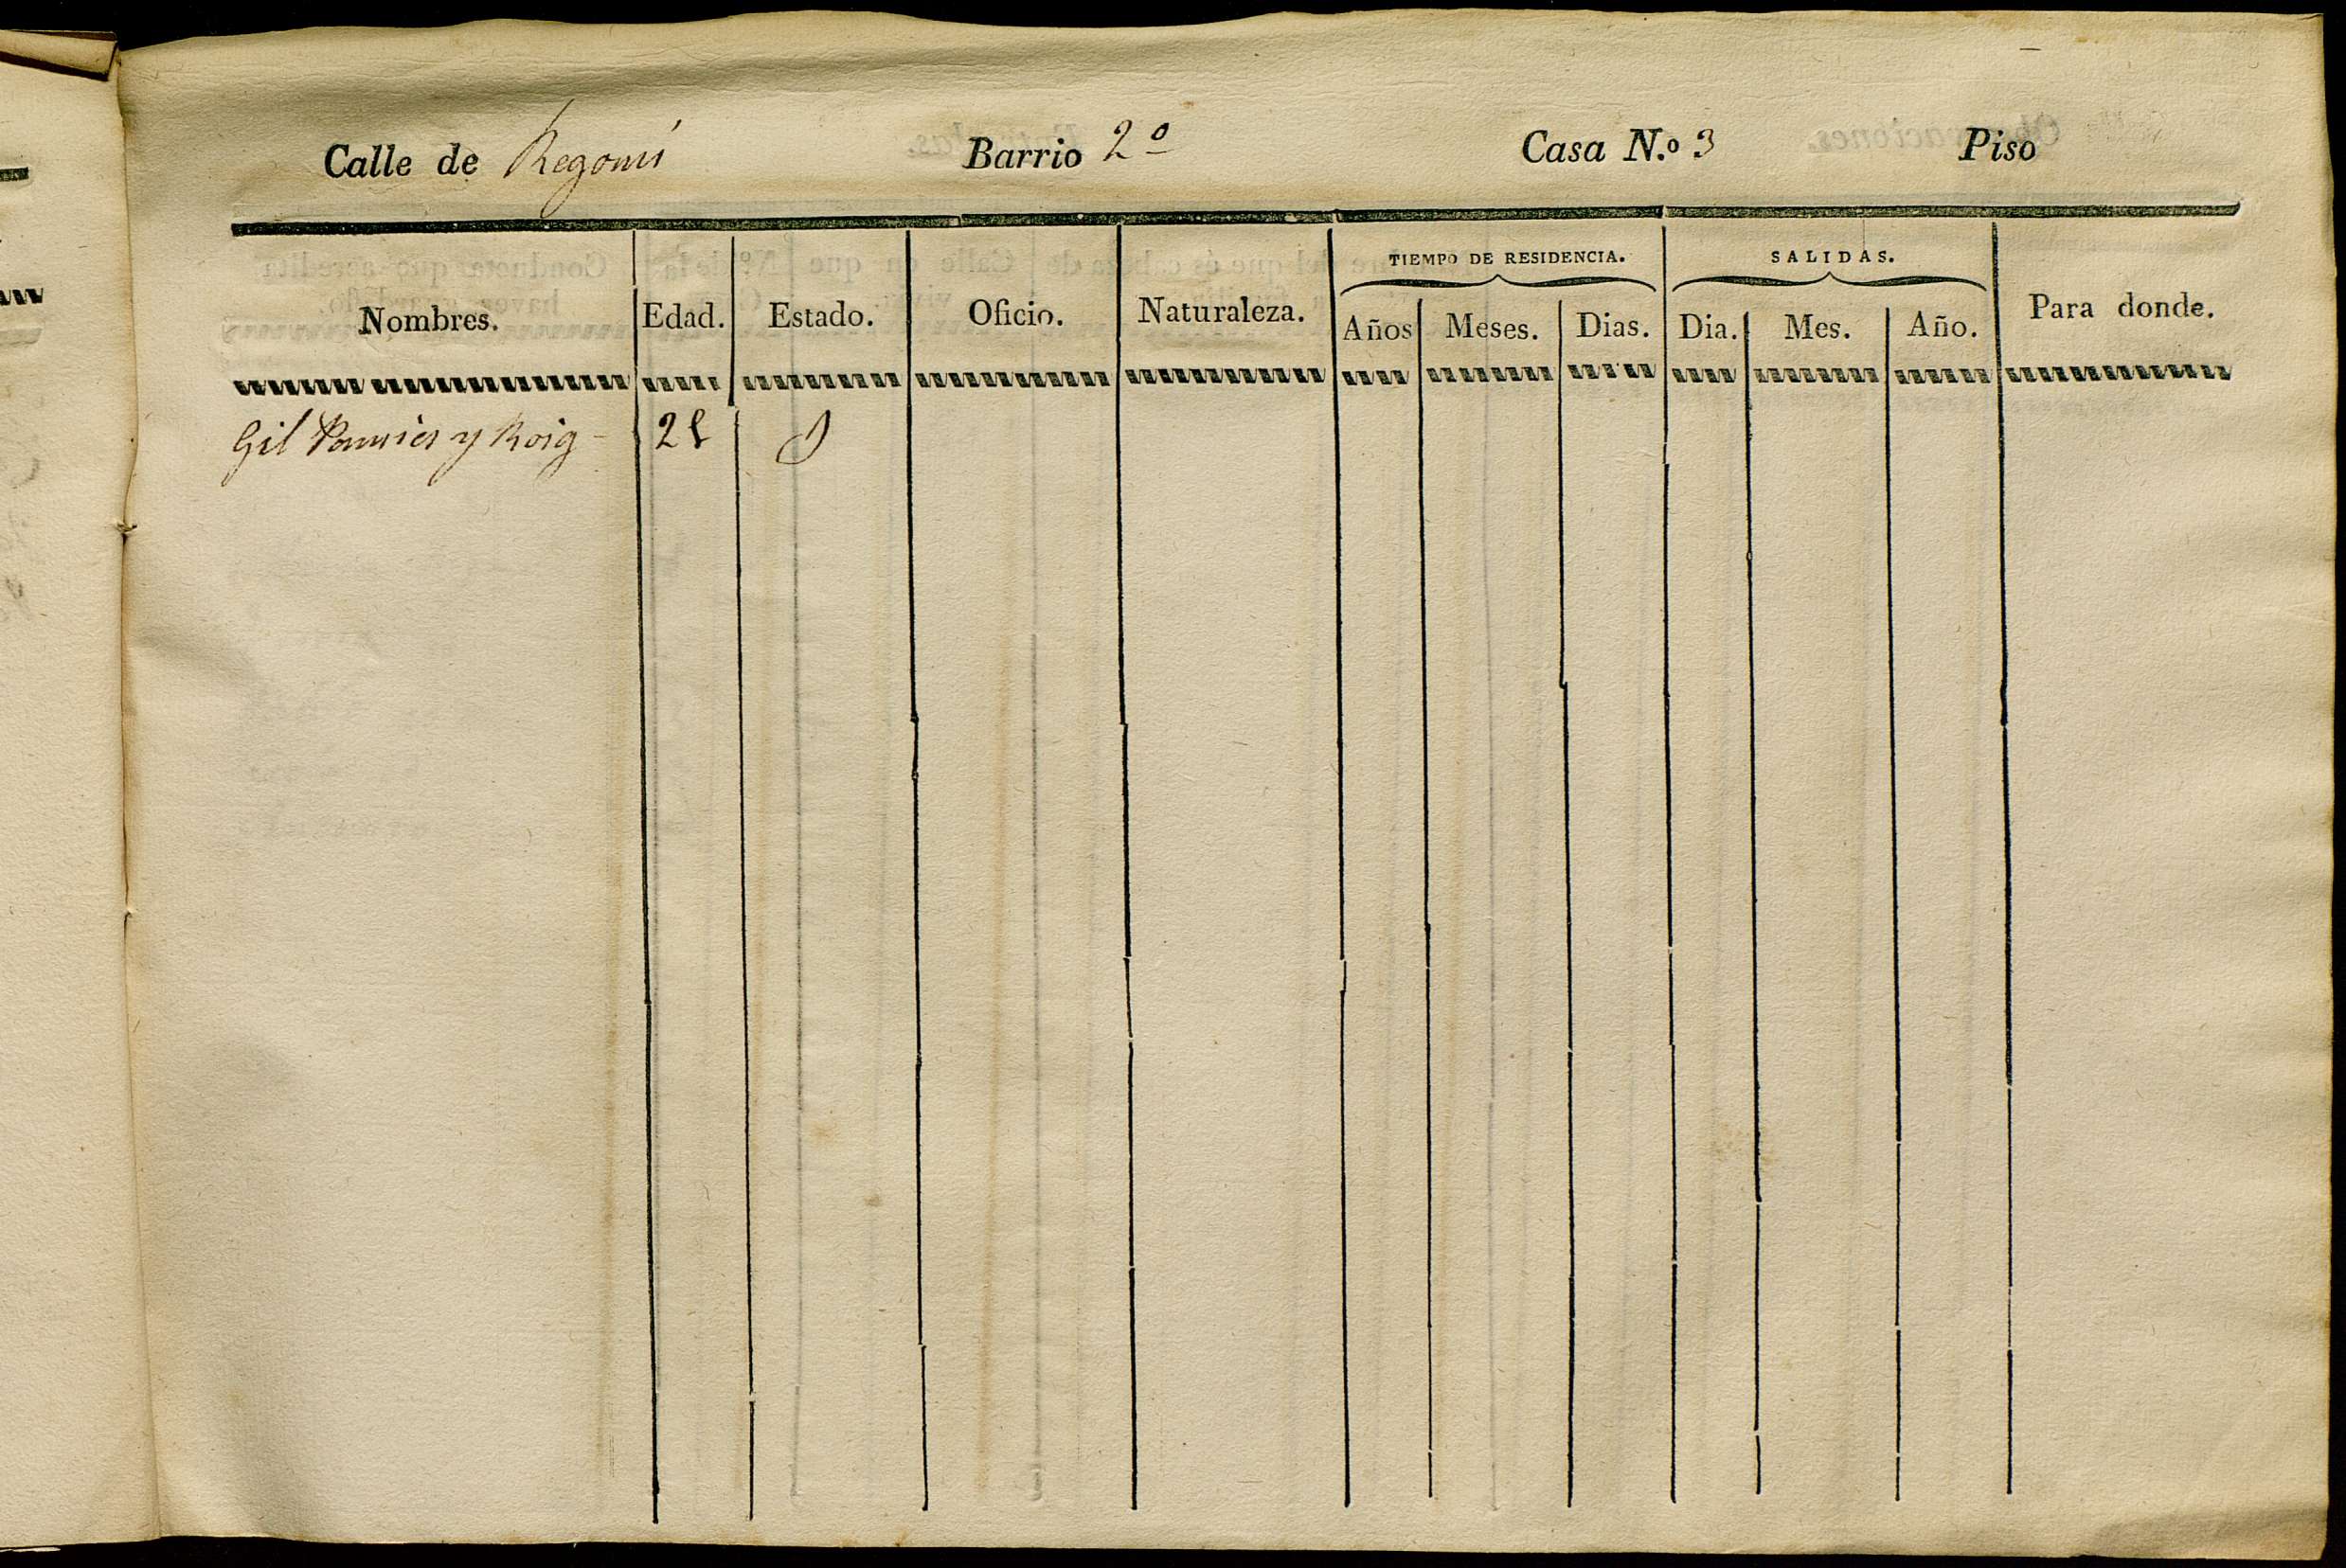 Calle de Regomi Barrio 2º Casa N.º 3 Piso
TIEMPO DE RESIDENCIA. SALIDAS.
Nombres. Edad. Estado. Oficio. Naturaleza. Años Meses. Dias. Dia. Mes. Año. Para donde.
Gil y Roig